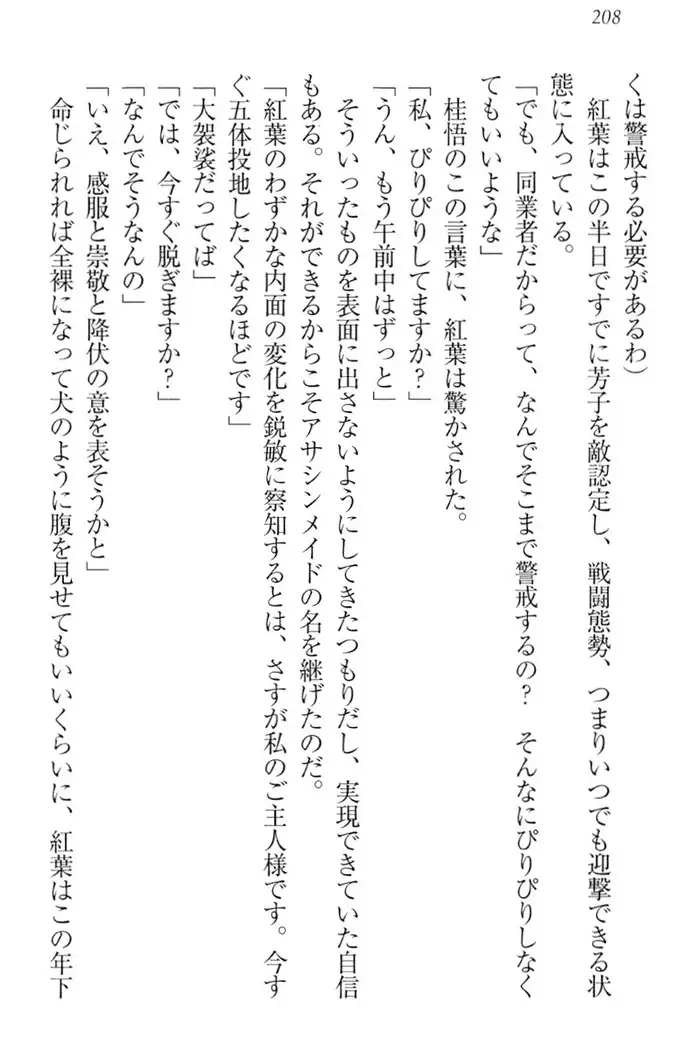 208
くは警戒する必要があるわ）
紅葉はこの半日ですでに芳子を敵認定し、戦闘態勢、つまりいつでも迎撃できる状
態に入っている。
「でも、同業者だからって、なんでそこまで警戒するの？　そんなにぴりぴりしなく
てもいいような」
桂悟のこの言葉に、紅葉は驚かされた。
「私、ぴりぴりしてますか？」
「うん、もう午前中はずっと」
そういったものを表面に出さないようにしてきたつもりだし、実現できていた自信
もある。それができるからこそアサシンメイドの名を継げたのだ。
「紅葉のわずかな内面の変化を鋭敏に察知するとは、さすが私のご主人様です。今す
ぐ五体投地したくなるほどです」
「大袈裟だってば」
「では、今すぐ脱ぎますか？」
「なんでそうなんの」
「いえ、感服と崇敬と降伏の意を表そうかと」
命じられれば全裸になって犬のように腹を見せてもいいくらいに、紅葉はこの年下